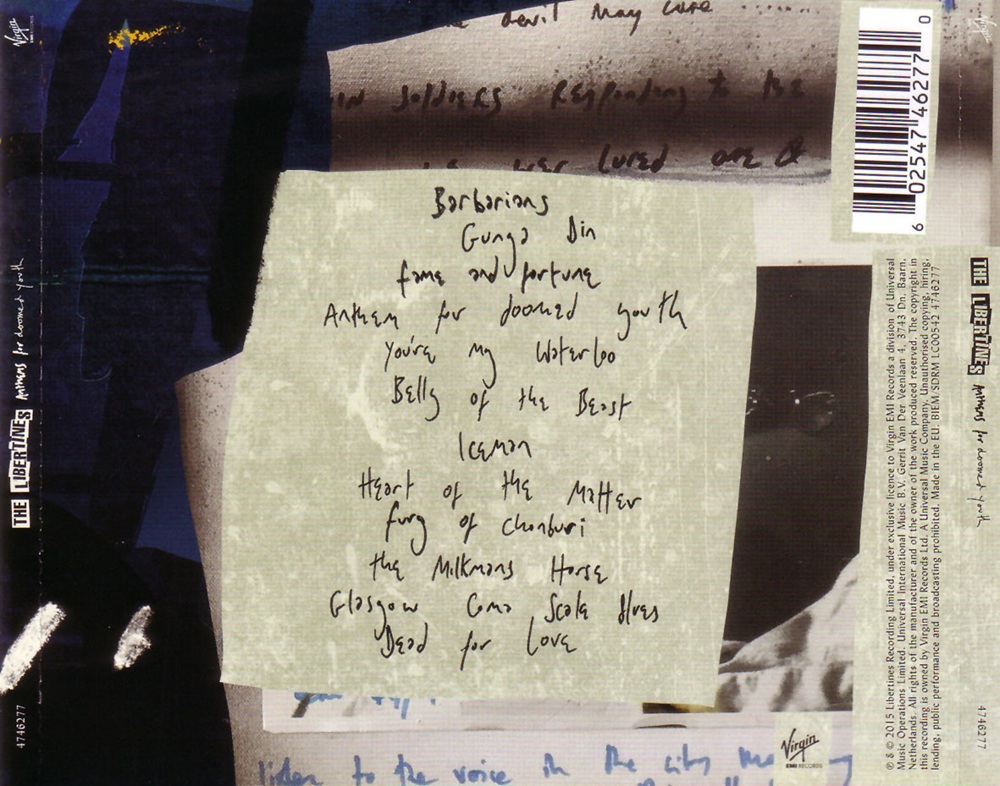 Virgin
EMI RECORDS
THE LIBERTINES Anthems for doomed youth
4746277
devil may care ......
soldiers Responding to the
ever lured one &
Barbarians
Gunga Din
fame and fortune
Anthem for doomed youth
You're my Waterloo
Belly of the Beast
Iceman
Heart of the Matter
fury of Chonburi
the Milkmans Horse
Glasgow Coma Scale Blues
Dead for Love
listen to the voice in the city
Virgin
EMI RECORDS
6 02547 46277 0
℗ & © 2015 Libertines Recording Limited, under exclusive licence to Virgin EMI Records a division of Universal
Music Operations Limited. Universal International Music B.V. Gerrit Van Der Veenlaan 4, 3743 Dn, Baarn,
Netherlands. All rights of the manufacturer and of the owner of the work produced reserved. The copyright in
this recording is owned by Virgin EMI Records Ltd. A Universal Music Company. Unauthorised copying, hiring,
lending, public performance and broadcasting prohibited. Made in the EU. BIEM/SDRM LC00542 4746277
THE LIBERTINES Anthems for doomed youth
4746277